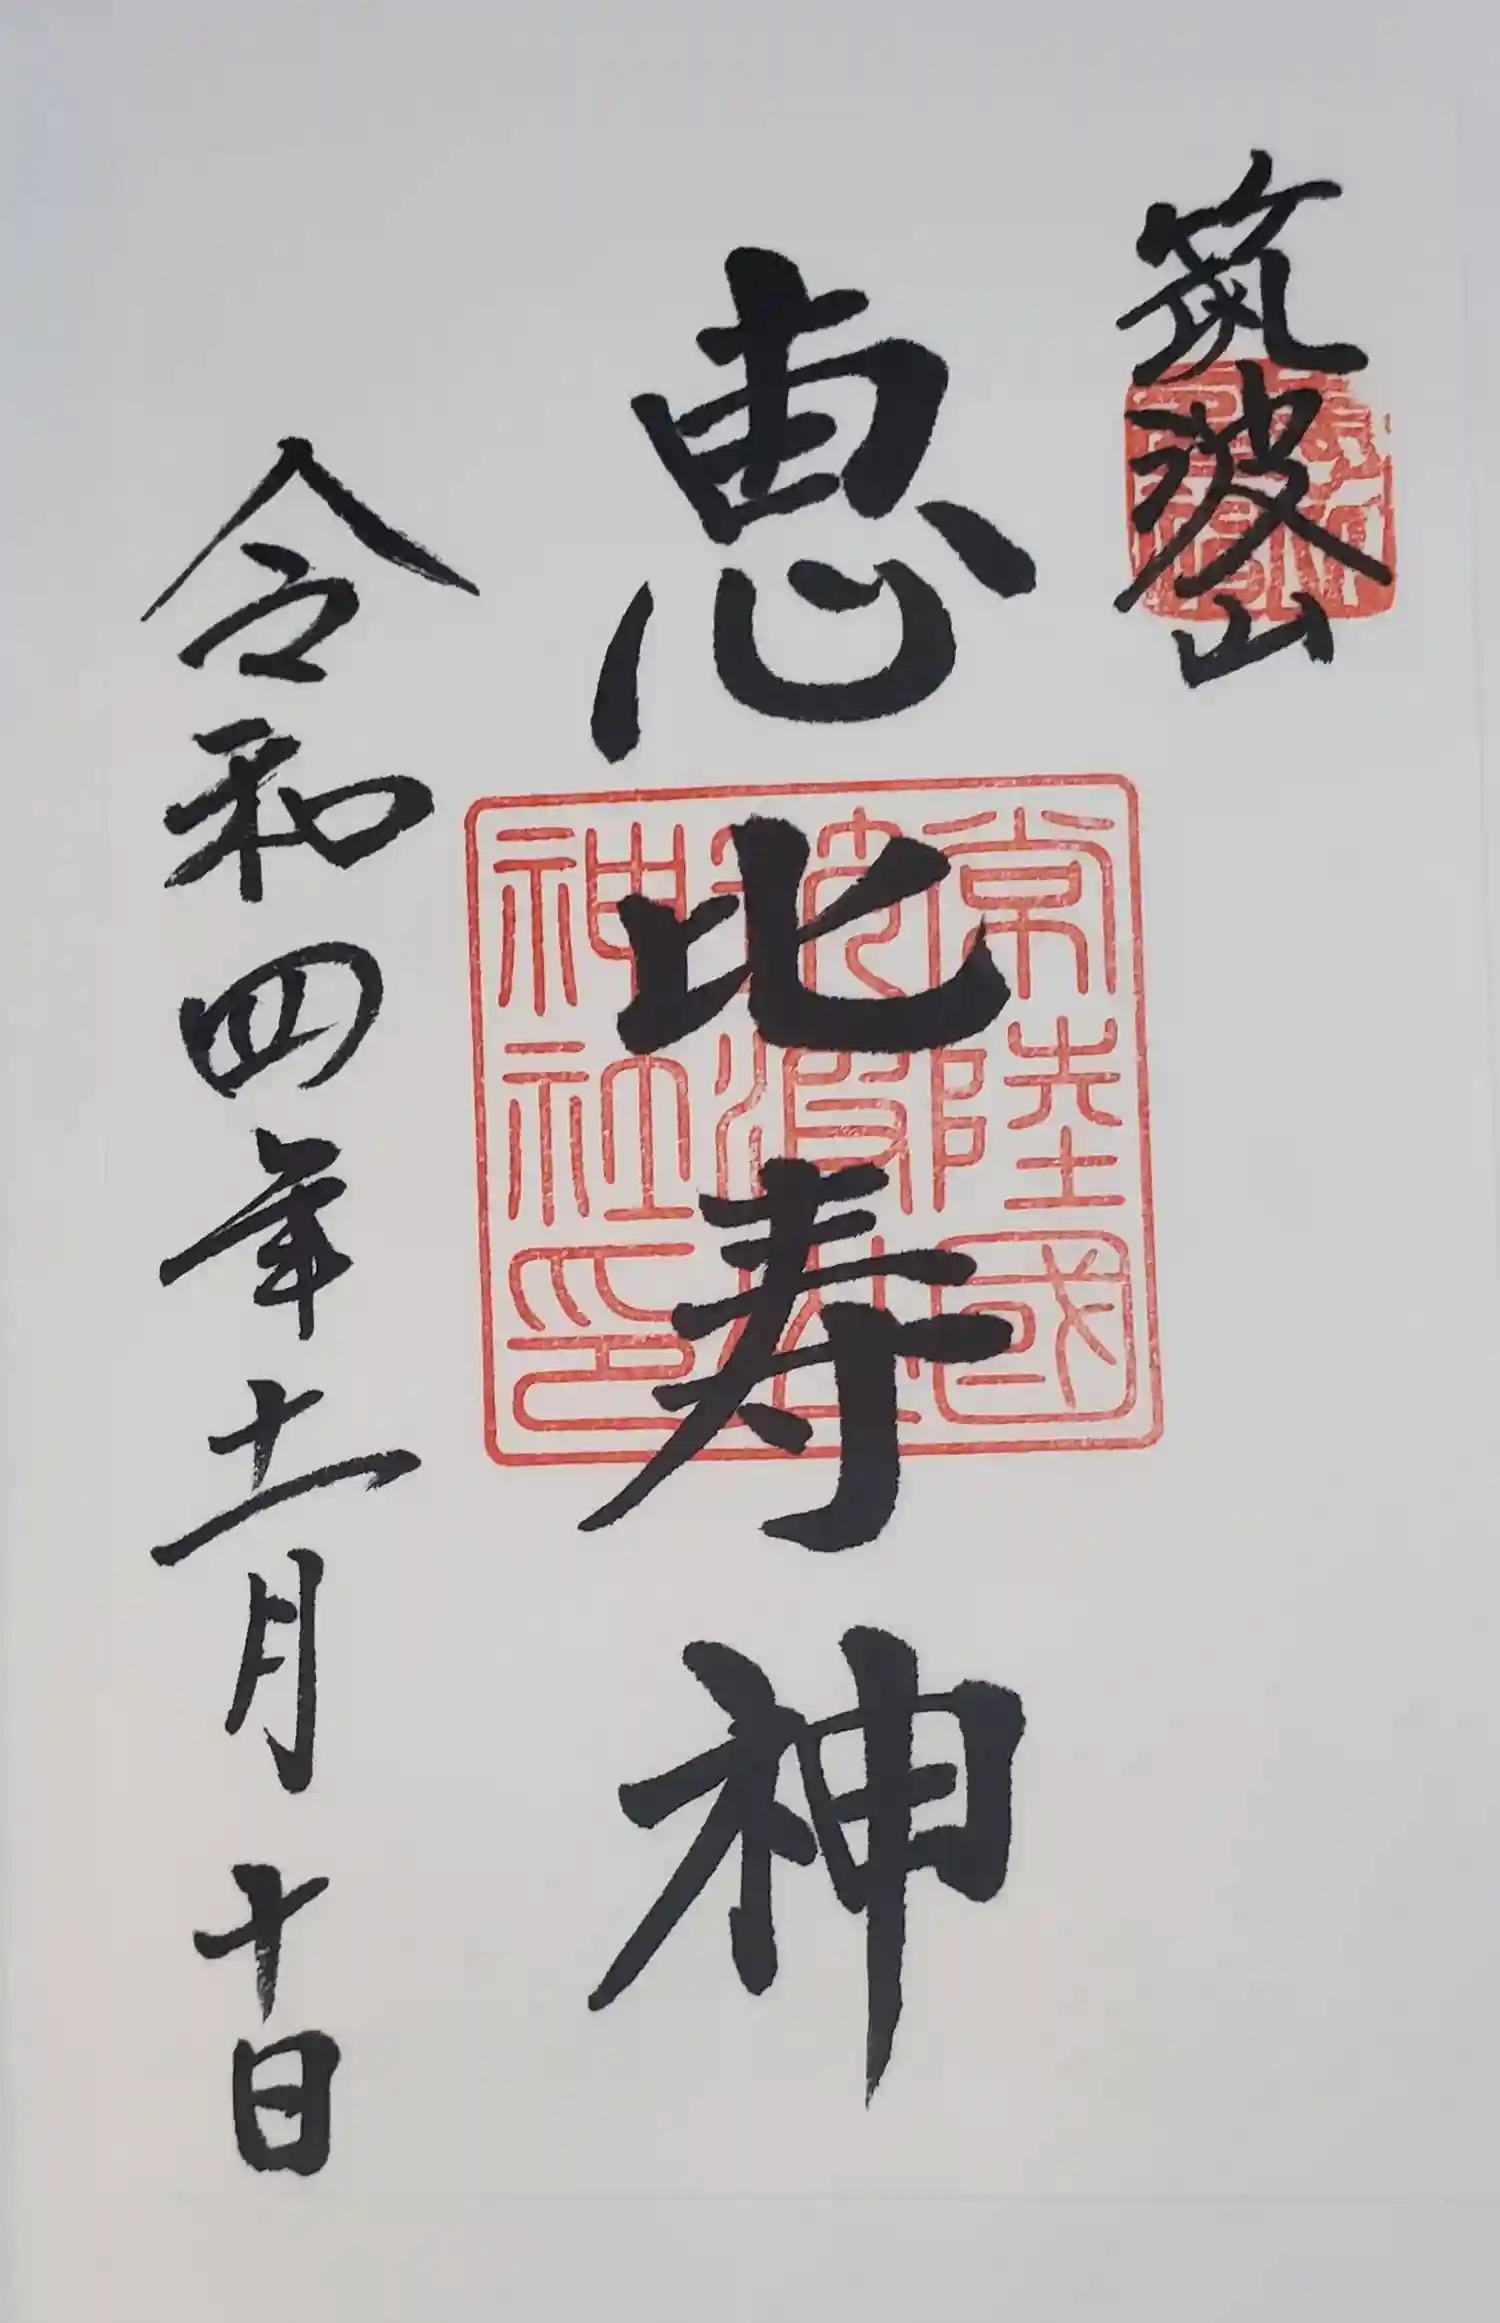 筑波山
恵比寿神
常陸國
筑波山
神社印
令和四年十一月十日